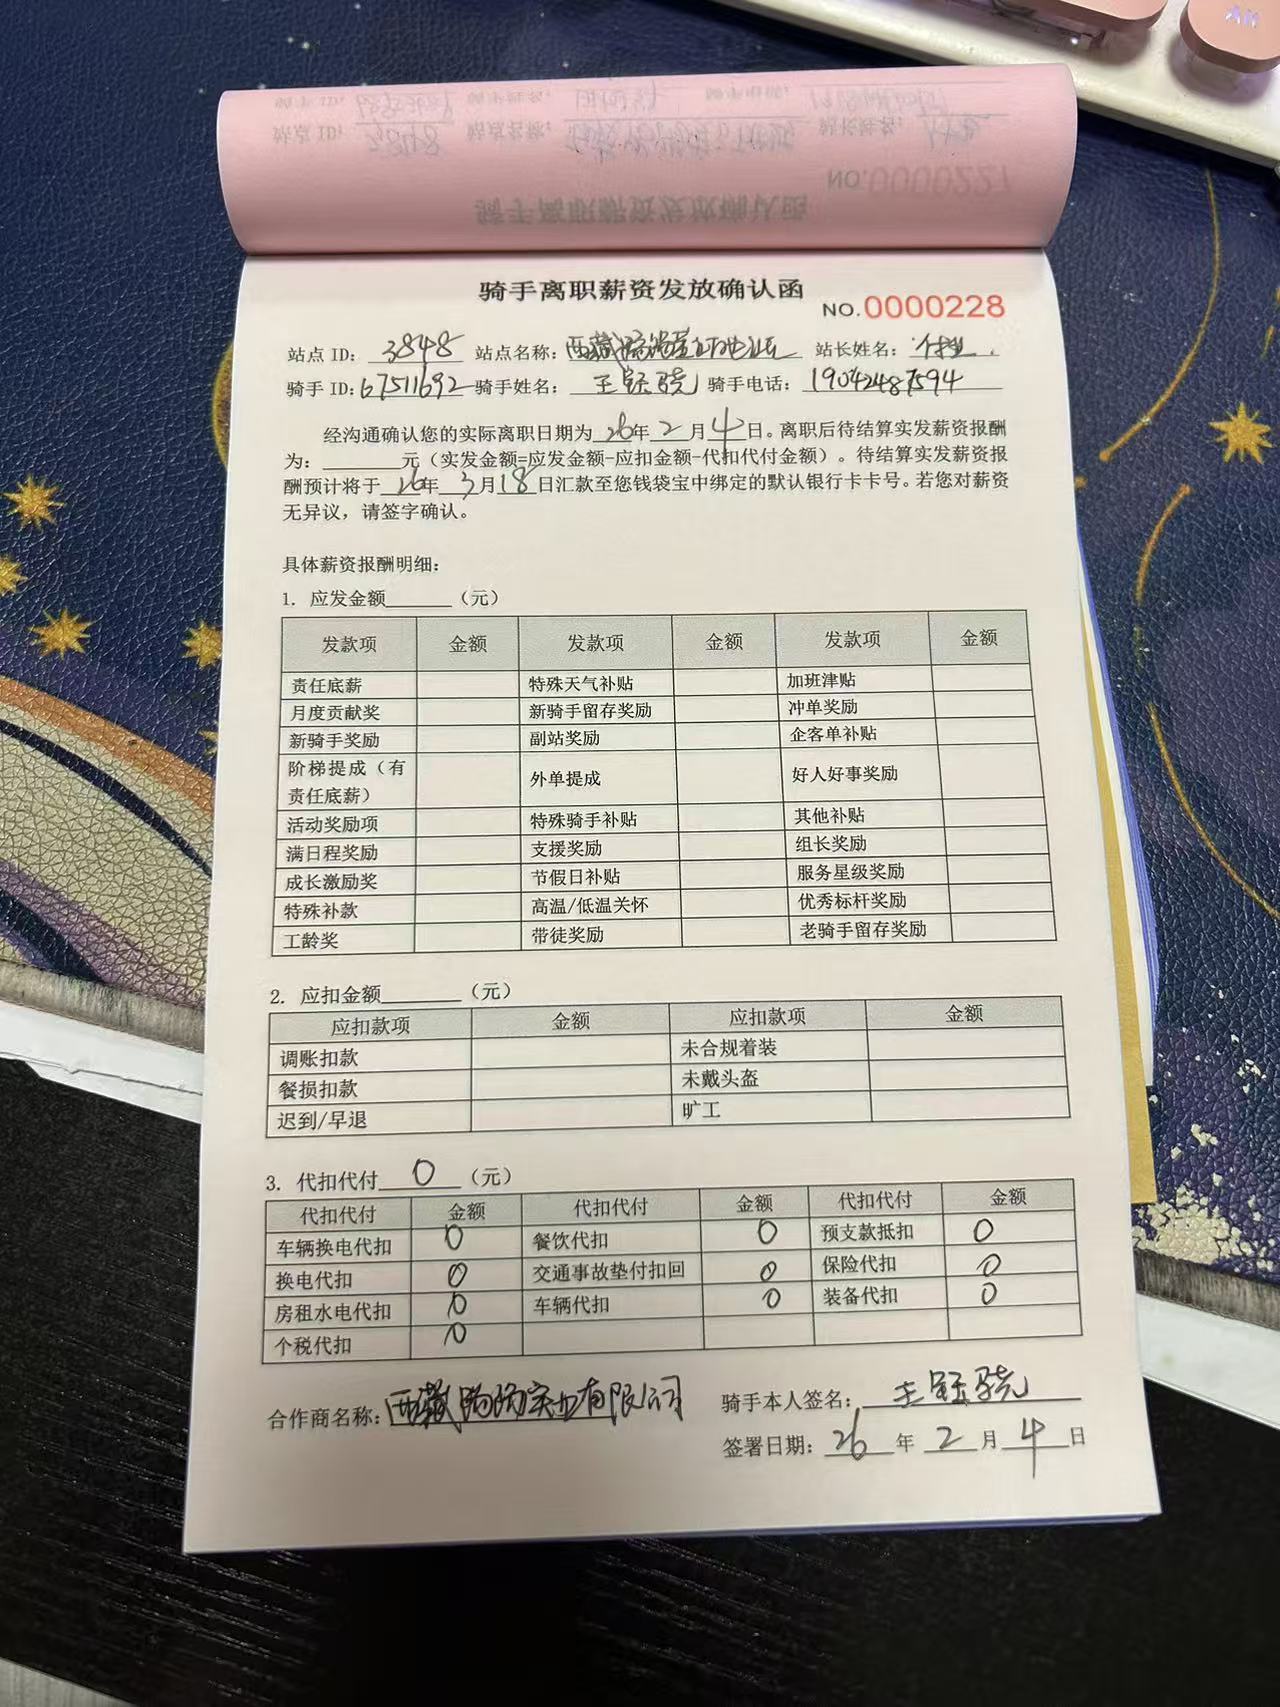 骑手离职薪资发放确认函
NO.0000228
站点 ID: 3848 站点名称: 西藏 站长姓名:
骑手 ID: 67511692 骑手姓名: 王钰骁 骑手电话: 19042487594
经沟通确认您的实际离职日期为26年2月4日。离职后待结算实发薪资报酬
为: ______元（实发金额=应发金额-应扣金额-代扣代付金额）。待结算实发薪资报
酬预计将于26年3月18日汇款至您钱袋宝中绑定的默认银行卡卡号。若您对薪资
无异议，请签字确认。
具体薪资报酬明细：
1. 应发金额______（元）
发款项 金额 发款项 金额 发款项 金额
责任底薪 特殊天气补贴 加班津贴
月度贡献奖 新骑手留存奖励 冲单奖励
新骑手奖励 副站奖励 企客单补贴
阶梯提成（有
责任底薪） 外单提成 好人好事奖励
活动奖励项 特殊骑手补贴 其他补贴
满日程奖励 支援奖励 组长奖励
成长激励奖 节假日补贴 服务星级奖励
特殊补款 高温/低温关怀 优秀标杆奖励
工龄奖 带徒奖励 老骑手留存奖励
2. 应扣金额______（元）
应扣款项 金额 应扣款项 金额
调账扣款 未合规着装
餐损扣款 未戴头盔
迟到/早退 旷工
3. 代扣代付 0 （元）
代扣代付 金额 代扣代付 金额 代扣代付 金额
车辆换电代扣 0 餐饮代扣 0 预支款抵扣 0
换电代扣 0 交通事故垫付扣回 0 保险代扣 0
房租水电代扣 0 车辆代扣 0 装备代扣 0
个税代扣 0
合作商名称: 西藏 实业有限公司 骑手本人签名: 王钰骁
签署日期: 26 年 2 月 4 日